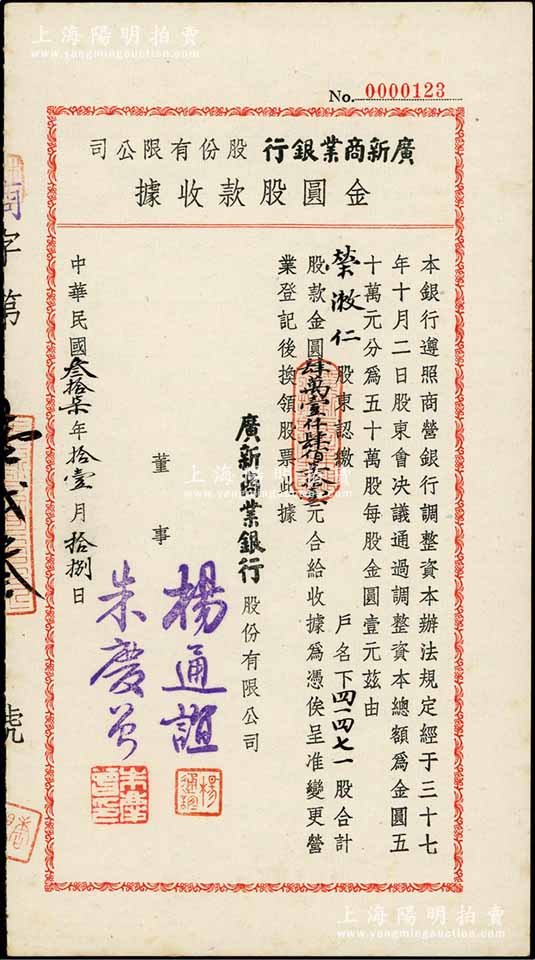 上海陽明拍賣
www.yangmingauction.com
No. 0000123
廣新商業銀行股份有限公司
金圓股款收據
本銀行遵照商營銀行調整資本辦法規定經于三十七
年十月二日股東會決議通過調整資本總額爲金圓五
十萬元分爲五十萬股每股金圓壹元茲由
榮漱仁 股東認繳 戶名下四一四七一股合計
股款金圓肆萬壹仟肆佰柒拾壹元合給收據爲憑俟呈准變更營
業登記後換領股票此據
廣新商業銀行股份有限公司
董事
楊通誼
朱慶曾
中華民國叁拾柒年拾壹月拾捌日
字第
號
上海陽明拍賣
www.yangmingauction.com
上海陽明拍賣
www.yangmingauction.com